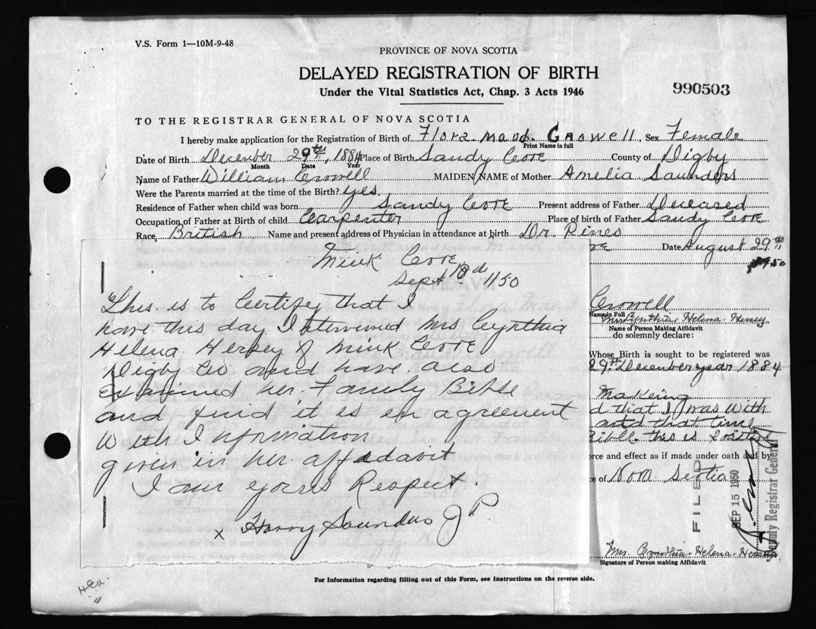 V.S. Form 1—10M-9-48
PROVINCE OF NOVA SCOTIA
DELAYED REGISTRATION OF BIRTH
Under the Vital Statistics Act, Chap. 3 Acts 1946
990503
TO THE REGISTRAR GENERAL OF NOVA SCOTIA
I hereby make application for the Registration of Birth of Flora Maud. Crowell, Sex Female
Print Name in full
Date of Birth December 29th, 1884 Place of Birth Sandy Cove County of Digby
Month Date Year
Name of Father William Crowell MAIDEN NAME of Mother Amelia Saunders
Were the Parents married at the time of the Birth? yes.
Residence of Father when child was born Sandy Cove Present address of Father Deceased
Occupation of Father at Birth of child Carpenter Place of birth of Father Sandy Cove
Race British Name and present address of Physician in attendance at birth Dr. Rines
Date August 29th
1950
Mink Cove
Sept 13d 1/50
This is to Certify that I
have this day Intervined Mrs Cynthia
Helena Hersey of Mink Cove
Digby Co. and have also
Examined her Family Bible
and find it is en agreement
With Information
given in her affadavit
I am yours Respect.
x Harry Saunders J P.
Crowell
Name in Full
Mrs Cynthia Helena Hersey
Name of Person Making Affidavit
do solemnly declare:
Whose Birth is sought to be registered was
29th December year 1884
Makeing
d that I was with
and that time
Bible this is
rce and effect as if made under oath and by
ce of Nova Scotia
FILED
SEP 15 1950
Deputy Registrar General
Mrs. Cynthia Helena Hersey
Signature of Person making Affidavit
For Information regarding filling out of this Form, see Instructions on the reverse side.